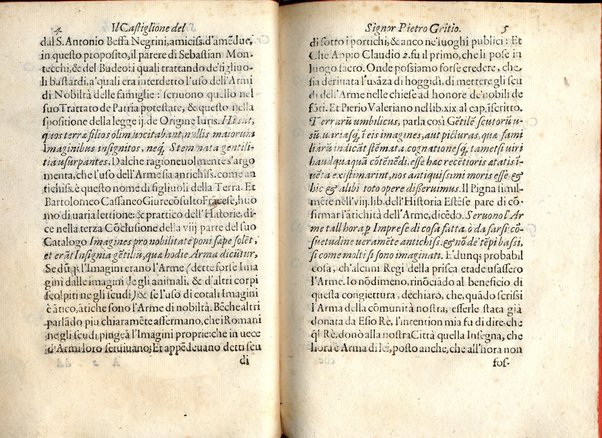 4 Il Castiglione del
dal S. Antonio Beffa Negrini, amiciss. d'amédue,
in questo proposito, il parere di Sebastian Mon-
tecchi, & del Budeo: i quali trattando de' figliuo-
li bastardi, a' quali era interdetto l'uso dell'Armi
di Nobiltà delle famiglie: scriuono quello nel
suo Trattato De Patria potestate, & questo nella
spositione della legge ij. de Origine Iuris. Hécat,
quos terræ filios olim vocitabant, nullis maiorum
Imaginibus insignitos, neq, Stemmata gentilitia
usurpantes. Dal che ragioneuolmente s'argo-
menta, che l'uso dell'Arme sia antichiss. come an-
tichiss. è questo nome di figliuoli della Terra. Et
Bartolomeo Cassaneo Giurecōsulto Frācese, huo-
mo di uaria lettione: & prattico dell'Historie, di-
ce nella terza Cōclusione della viij parte del suo
Catalogo Imagines pro nobilitate poni sæpe solēt,
et erāt Insignia gētiliū, quæ hodie Arma dicūtur,
Se dūq; l'Imagini erano l'Arme (dette forse Ima
gini dalle imagini de gli animali, & d'altri corpi
scolpiti ne gli scudi,) & se l'uso di cotali Imagini
è ātico, ātiche sono l'Arme di nobiltà. Bēche altri
parlādo piu chiaramēte affermano, che i Romani
ne gli scudi, pingeā l'Imagini proprie: che in uece
d'Armi loro seruiuano: Et appēdeuano detti scu
di
Signor Pietro Gritio. 5
di sotto i portichi, & anco ne' luoghi publici: Et
Che Appio Claudio 2. fu il primo, che li pose in
luogo sacro. Onde possiamo forse credere, che
sia deriuata l'usāza di hoggidì, di mettere gli scu
di dell'Armi nelle chiese ad honore de' nobili de
fōti. Et Pierio Valeriano nel lib. xix al cap. iscritto,
Terrarū umbilicus, parla così Gētilē scutorū u-
sū uarias q́, ī eis imagines, aut picturas, quæ fami
liarū indicāt stēmata, cognationes q́, tametsi uiri
haudquaquā cōtēnēdi, esse hæc recētioris ætatis ī
uēta existimarint, nos antiquissimi moris esse, &
hic & alibi toto opere disseruimus. Il Pigna simil-
mēte nell'viij. lib. dell'Historia Estēse pare di cō-
firmar l'ātichità dell'Arme, dicēdo. Seruono l'Ar
me tall'hora p Imprese di cosa fatta, ò da farsi: cō-
suetudine ueramēte antichiss, & nō de' tēpi bassi,
si come molti si sono imaginati. E' dunq; probabil
cosa, ch'alcuni Regi della prisca etade usassero
l'Arme. Io nōdimeno, rinōciādo al beneficio di
questa congiettura, dechiaro, che, quādo scrissi
l'Arma della cōmunità nostra, esserle stata già
donata da Esio Rè, l'intention mia fu di dire, ch'
ql Rè, donò alla nostra Città quella Insegna, che
hora è Arma di lei, posto anche, che all'hora non
fos-